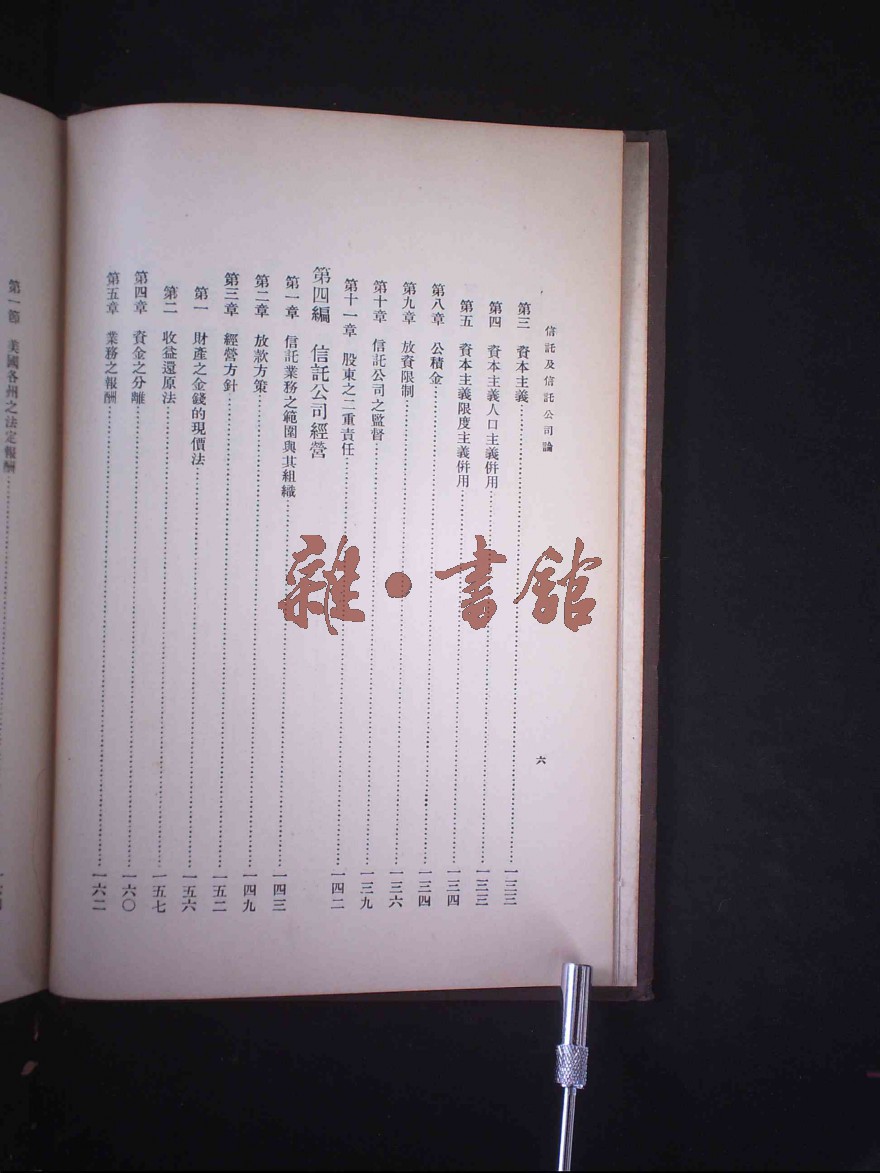 信託及信託公司論
六
第三 資本主義……一三三
第四 資本主義人口主義併用……一三三
第五 資本主義限度主義併用……一三四
第八章 公積金……一三四
第九章 放資限制……一三六
第十章 信託公司之監督……一三九
第十一章 股東之二重責任……一四二
第四編 信託公司經營
第一章 信託業務之範圍與其組織……一四三
第二章 放款方策……一四九
第三章 經營方針……一五二
第一 財產之金錢的現價法……一五六
第二 收益還原法……一五七
第四章 資金之分離……一六〇
第五章 業務之報酬……一六二
第一節 美國各州之法定報酬……
雜·書館